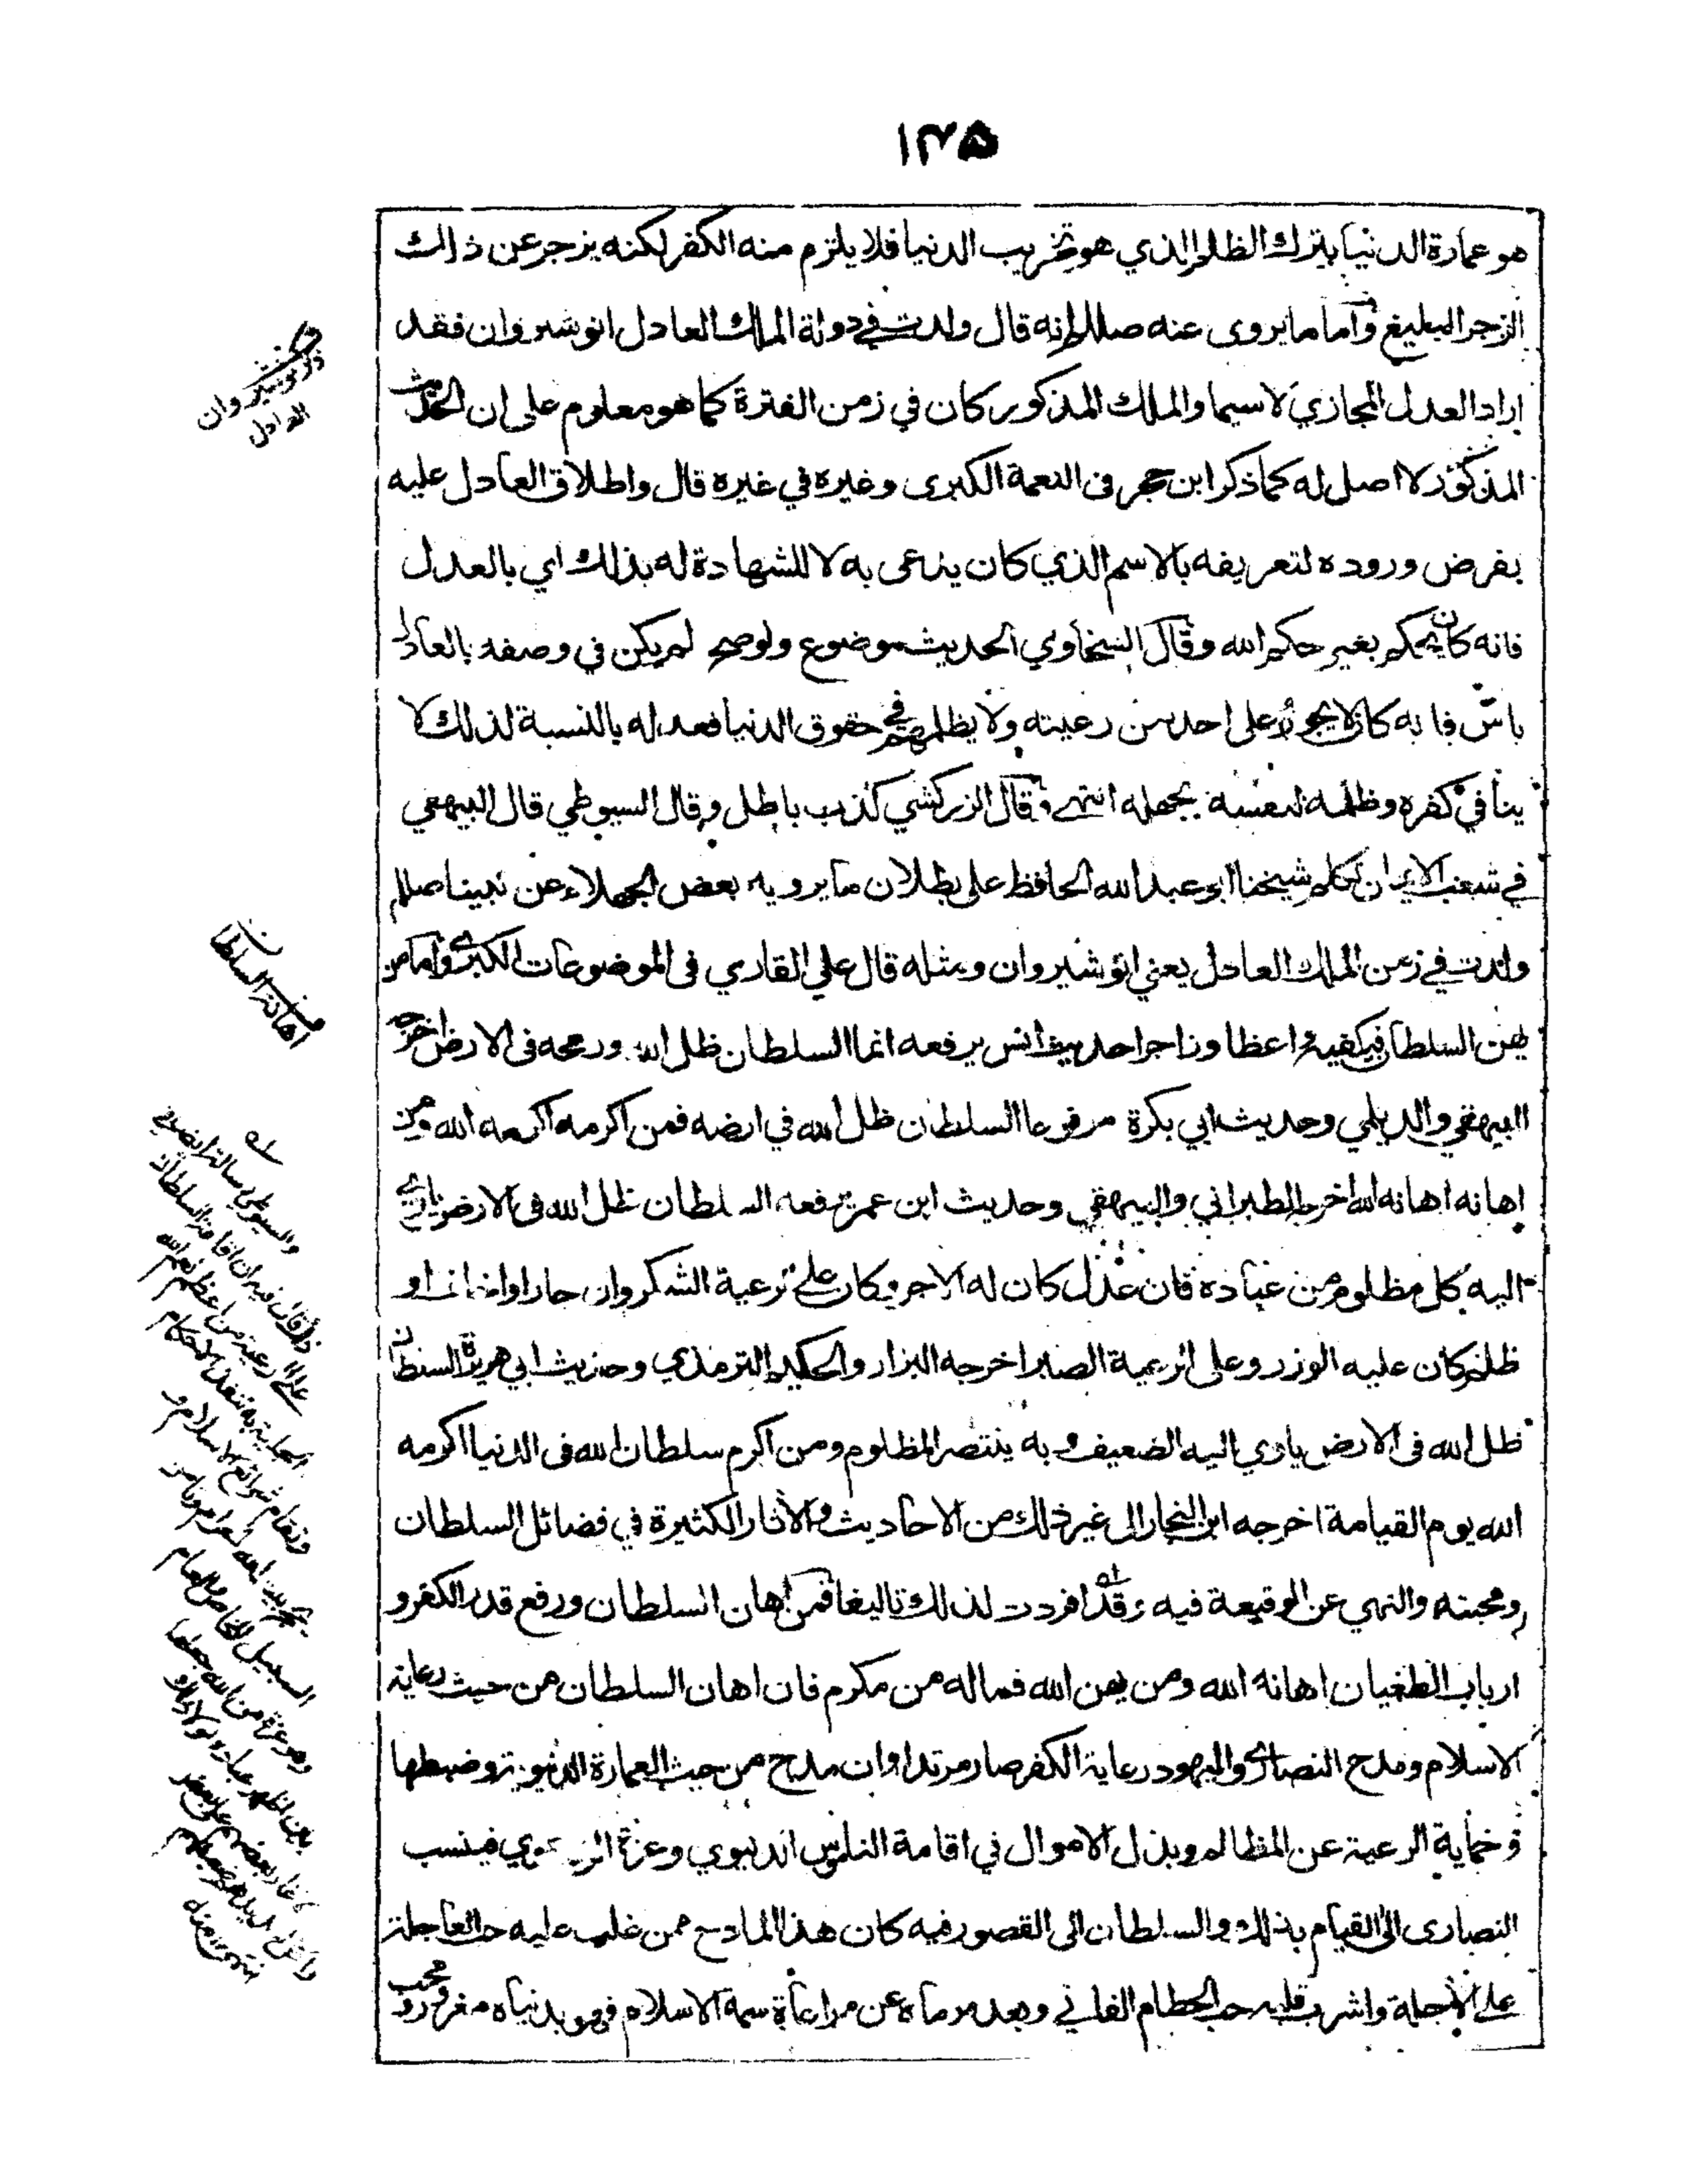 ١٣٥
هو عمارة الدنيا بترك الظلم الذي هو تخريب الدنيا فلا يلتزم منه الكفر لكنه يزجر عن ذالك
الزجر البليغ واما ما يروى عنه صللم انه قال ولدت في دولة الملك العادل انوشيروان فقد
اراد العدل المجازي لا سيما والملك المذكور كان في زمن الفترة كما هو معلوم على ان الحديث
المذكور لا اصل له كما ذكر ابن حجر فى النعمة الكبرى وغيره في غيره قال واطلاق العادل عليه
بفرض وروده لتعريفه بالاسم الذي كان يدعى به لا للشهادة له بذلك اي بالعدل
فانه كان يحكم بغير حكم الله وقال السخاوي الحديث موضوع ولو صح لم يكن في وصفه بالعادل
باس فانه كان لا يجور على احد من رعيته ولا يظلمهم في حقوق الدنيا فعدله بالنسبة لذلك لا
ينافي كفره وظلمه لنفسه بجهله انتهى وقال الزركشي كذب باطل وقال السيوطي قال البيهقي
في شعب الايمان تكلم شيخنا ابو عبد الله الحافظ على بطلان ما يرويه بعض الجهلاء عن نبينا صللم
ولدت في زمن الملك العادل يعني انوشيروان ومثله قال علي القاري فى الموضوعات الكبرى واما من
يهن السلطان فيكفيه واعظا وزاجرا حديث انس يرفعه انما السلطان ظل الله ورمحه فى الارض اخرجه
البيهقي والديلمي وحديث ابي بكرة مرفوعا السلطان ظل الله في ارضه فمن اكرمه اكرمه الله ومن
اهانه اهانه الله اخرجه الطبراني والبيهقي وحديث ابن عمر يرفعه السلطان ظل الله فى الارض ياوي
اليه كل مظلوم من عباده فان عدل كان له الاجر وكان على الرعية الشكر وان جار او خان او
ظلم كان عليه الوزر وعلى الرعية الصبر اخرجه البزار والحكيم الترمذي وحديث ابي هريرة السلطان
ظل الله فى الارض ياوي اليه الضعيف وبه ينتصر المظلوم ومن اكرم سلطان الله فى الدنيا اكرمه
الله يوم القيامة اخرجه ابن النجار الى غير ذلك من الاحاديث والاثار الكثيرة في فضائل السلطان
ومحبته والنهي عن الوقيعة فيه وقد افردت لذلك تاليفا فمن اهان السلطان ورفع قدر الكفر و
ارباب الطغيان اهانه الله ومن يهن الله فماله من مكرم فان اهان السلطان من حيث رعاية
الاسلام ومدح النصارى واليهود رعاية الكفر صار مرتدا وان مدح من حيث العمارة الدنيوية وضبطها
وحماية الرعية عن المظالم وبذل الاموال في اقامة الناموس الدنيوي وعزة فينسب
النصارى الى القيام بذلك والسلطان الى القصور فيه كان هذا المادح ممن غلب عليه حب العاجلة
على الآجلة واشرب قلبه حب الحطام الفاني وبعد مرماه عن مراعاة سمة الاسلام فهو بدنياه مغرور ومحب
ذكر نوشيروان
العادل
اهانة السلطان
والسيوطي رسالة ايضا في
ذلك قال فيه ان اقامة السلطان
على رعيته من اعظم نعم الله